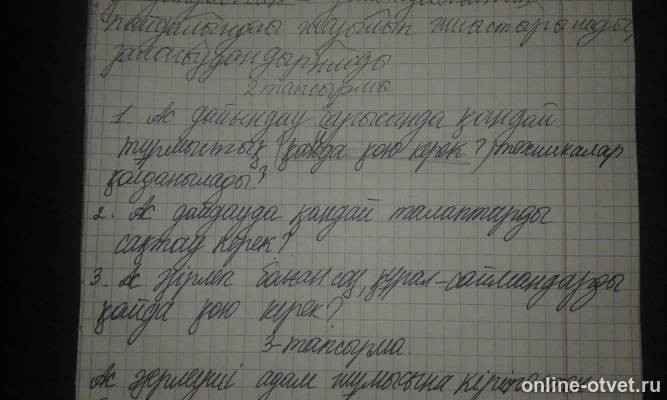 пайдаланып
2 тапсырма
1. Ас дайындау барысында қандай
тұрмыстық (қайда қою керек?) техникалар
қолданылады?
2. Ас дайдауда қандай талаптарды
сақтау керек?
3. Ас әзірлеп болған соң, құрал-саймандарды
қайда қою керек?
3-тапсырма.
Ас әзерлеуші адам жұмысына
online-otvet.ru